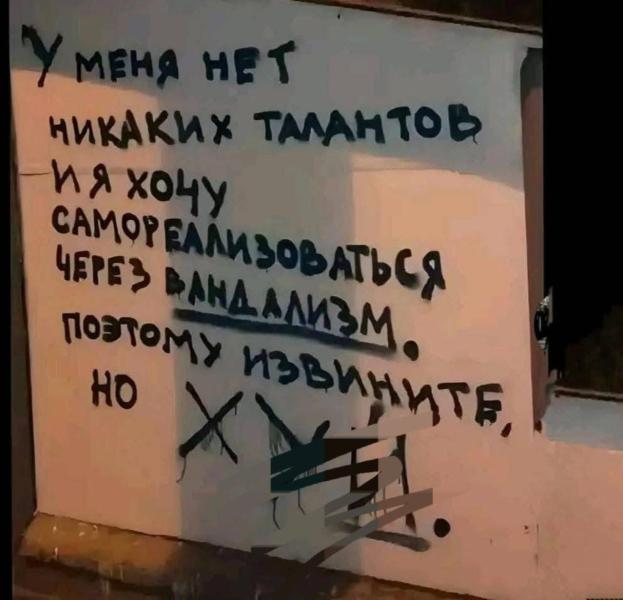 У МЕНЯ НЕТ
НИКАКИХ ТАЛАНТОВ
И Я ХОЧУ
САМОРЕАЛИЗОВАТЬСЯ
ЧЕРЕЗ ВАНДАЛИЗМ.
ПОЭТОМУ ИЗВИНИТЕ,
НО